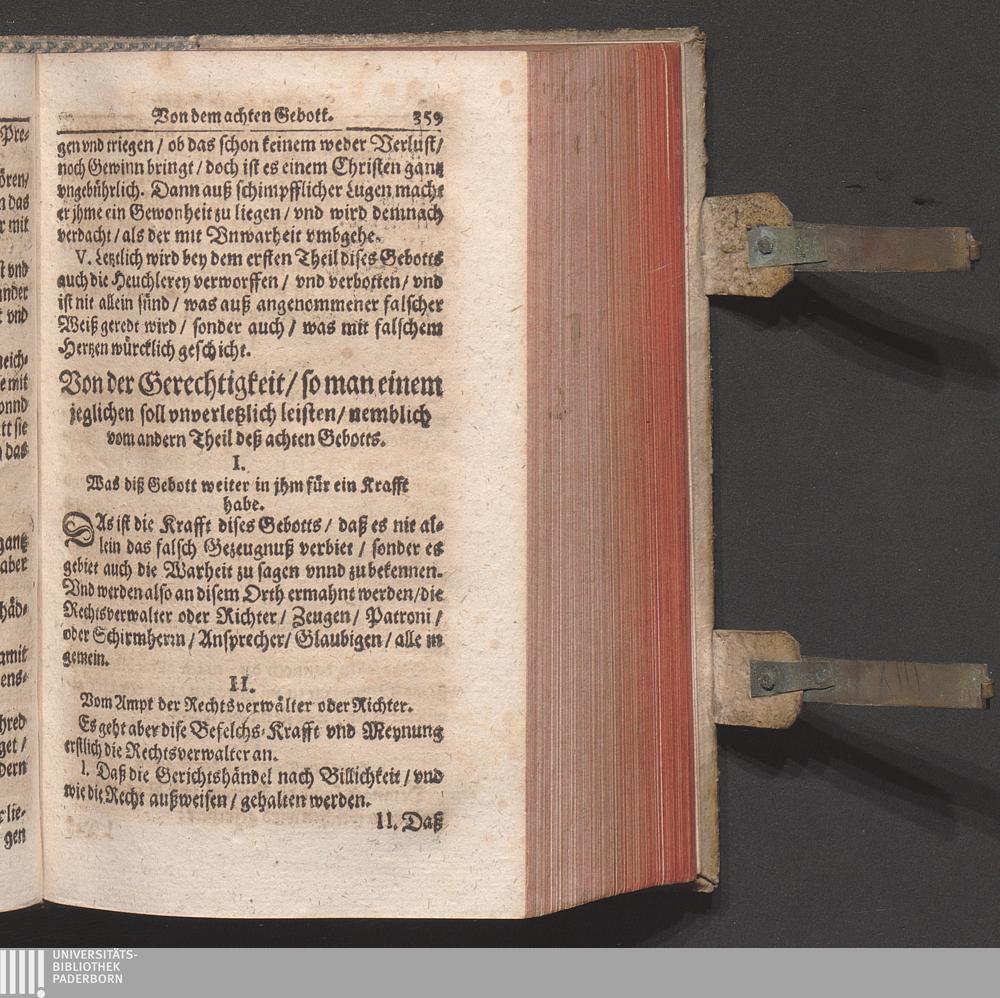 Von dem achten Gebott. 359
gen vnd triegen / ob das schon keinem weder Verlust /
noch Gewinn bringt / doch ist es einem Christen gantz
vngebührlich. Dann auß schimpfflicher Lugen macht
er jhme ein Gewonheit zu liegen / vnd wird demnach
verdacht / als der mit Vnwarheit vmbgehe.
V. Letztlich wird bey dem ersten Theil dises Gebotts
auch die Heuchlerey verworffen / vnd verbotten / vnd
ist nit allein sünd / was auß angenommener falscher
Weiß geredt wird / sonder auch / was mit falschem
Hertzen würcklich geschicht.
Von der Gerechtigkeit / so man einem
jeglichen soll vnverletzlich leisten / nemblich
vom andern Theil deß achten Gebotts.
I.
Was diß Gebott weiter in jhm für ein Krafft
habe.
DAs ist die Krafft dises Gebotts / daß es nit al-
lein das falsch Gezeugnuß verbiet / sonder es
gebiet auch die Warheit zu sagen vnnd zu bekennen.
Vnd werden also an disem Orth ermahnt werden / die
Rechtsverwalter oder Richter / Zeugen / Patroni /
oder Schirmherrn / Ansprecher / Glaubigen / alle in
gemein.
II.
Vom Ampt der Rechtsverwälter oder Richter.
Es geht aber dise Befelchs-Krafft vnd Meynung
erstlich die Rechtsverwalter an.
I. Daß die Gerichtshändel nach Billichkeit / vnd
wie die Recht außweisen / gehalten werden.
II. Daß
UNIVERSITÄTS-
BIBLIOTHEK
PADERBORN